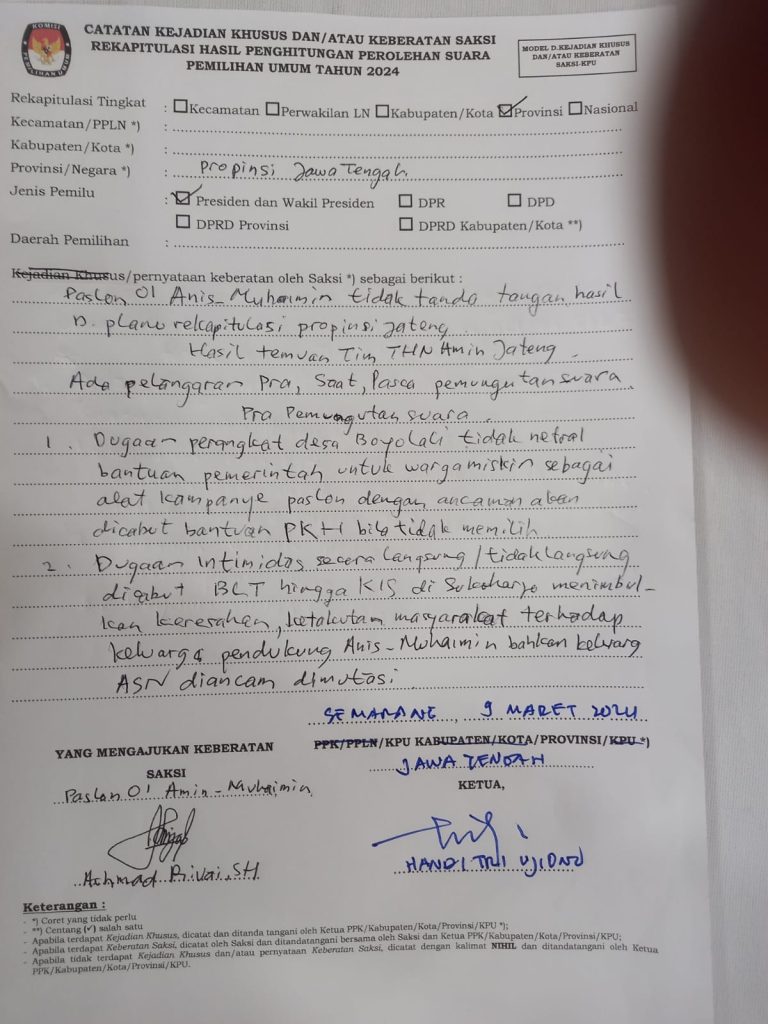 KOMISI
PEMILIHAN UMUM
CATATAN KEJADIAN KHUSUS DAN/ATAU KEBERATAN SAKSI
REKAPITULASI HASIL PENGHITUNGAN PEROLEHAN SUARA
PEMILIHAN UMUM TAHUN 2024
MODEL D.KEJADIAN KHUSUS
DAN/ATAU KEBERATAN
SAKSI-KPU
Rekapitulasi Tingkat : Kecamatan Perwakilan LN Kabupaten/Kota Provinsi Nasional
Kecamatan/PPLN *) :
Kabupaten/Kota *) :
Provinsi/Negara *) : Propinsi Jawa Tengah
Jenis Pemilu : Presiden dan Wakil Presiden DPR DPD
DPRD Provinsi DPRD Kabupaten/Kota **)
Daerah Pemilihan :
Kejadian Khusus/pernyataan keberatan oleh Saksi *) sebagai berikut :
Paslon 01 Anis-Muhaimin tidak tanda tangan hasil
D. plano rekapitulasi propinsi jateng
Hasil temuan Tim THN Amin Jateng.
Ada pelanggaran Pra, Saat, Pasca pemungutan suara.
Pra Pemungutan suara.
1. Dugaan perangkat desa Boyolali tidak netral
bantuan pemerintah untuk warga miskin sebagai
alat kampanye paslon dengan ancaman akan
dicabut bantuan PKH bila tidak memilih
2. Dugaan Intimidas secara langsung/tidak langsung
dicabut BLT hingga KIS di Sukoharjo menimbul-
kan keresahan, ketakutan masyarakat terhadap
keluarga pendukung Anis-Muhaimin bahkan keluarg
ASN diancam dimutasi.
SEMARANG, 9 MARET 2024
YANG MENGAJUKAN KEBERATAN
PPK/PPLN/KPU KABUPATEN/KOTA/PROVINSI/KPU *)
SAKSI
JAWA TENGAH
Paslon 01 Amin-Muhaimin
KETUA,
Achmad Rivai, SH
HANDI TRI UJIONO
Keterangan :
- *) Coret yang tidak perlu
- **) Centang (✓) salah satu
- Apabila terdapat Kejadian Khusus, dicatat dan ditanda tangani oleh Ketua PPK/Kabupaten/Kota/Provinsi/KPU *);
- Apabila terdapat Keberatan Saksi, dicatat oleh Saksi dan Ditandatangani bersama oleh Saksi dan Ketua PPK/Kabupaten/Kota/Provinsi/KPU;
- Apabila tidak terdapat Kejadian Khusus dan/atau pernyataan Keberatan Saksi, dicatat dengan kalimat NIHIL dan ditandatangani oleh Ketua
PPK/Kabupaten/Kota/Provinsi/KPU.